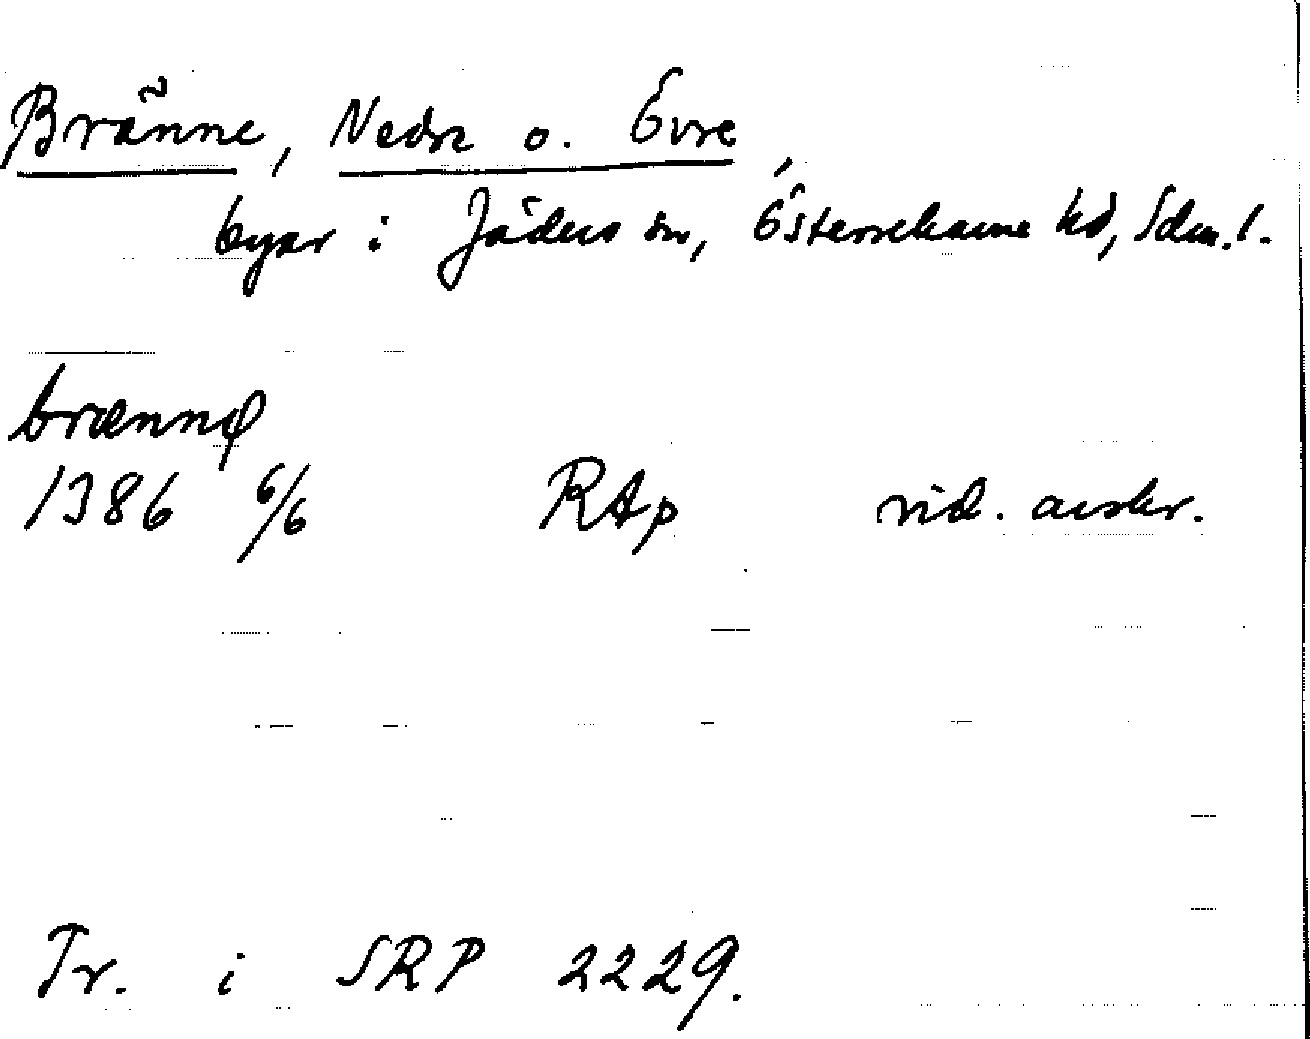 Bränne, Nedre o. Övre,
byar i Jäders sn, Österrekarne hd, Sdm. l.
brænnø
1386 6/6 RAp vid. avskr.
Tr. i SRP 2229.